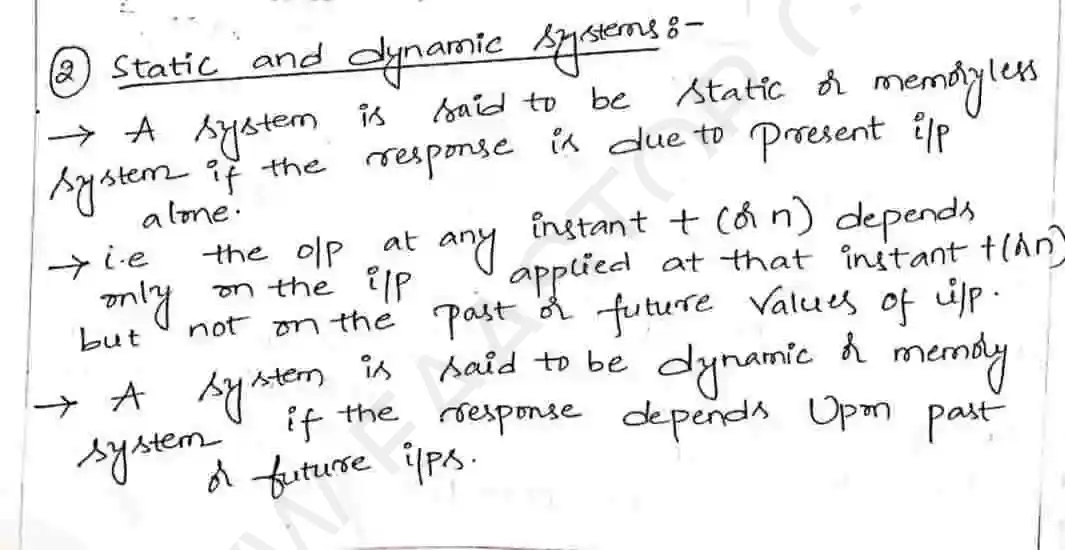 ② Static and dynamic systems :-
→ A system is said to be static or memoryless
system if the response is due to present i/p
alone.
→ i.e the o/p at any instant t (or n) depends
only on the i/p applied at that instant t (or n)
but not on the past or future values of i/p.
→ A system is said to be dynamic or memory
system if the response depends upon past
or future i/ps.